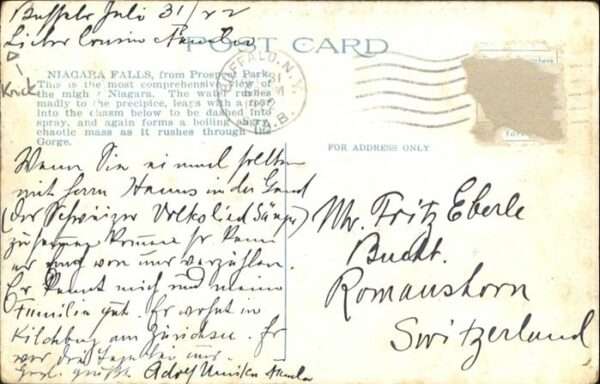 Buffalo Juli 31/22
Lieber Cousin
POST CARD
BUFFALO, N.Y.
NIAGARA FALLS, from Prospect Park.
This is the most comprehensive view of
the mighty Niagara. The water rushes
madly to the precipice, leaps with a roar
into the chasm below to be dashed into
spray, and again forms a boiling
chaotic mass as it rushes through
Gorge.
FOR ADDRESS ONLY
Wenn Sie einmal sollten
mit Herrn Hanns in der Gand
(der Schweizer Volkslied Sänger)
zusammen kommen so kann
er von mir erzählen.
Er kennt mich und meine
Familie gut. Er wohnt in
Kilchberg am Zürichsee. Er
war drei
Adolf
Mr. Fritz Eberle
Romanshorn
Switzerland